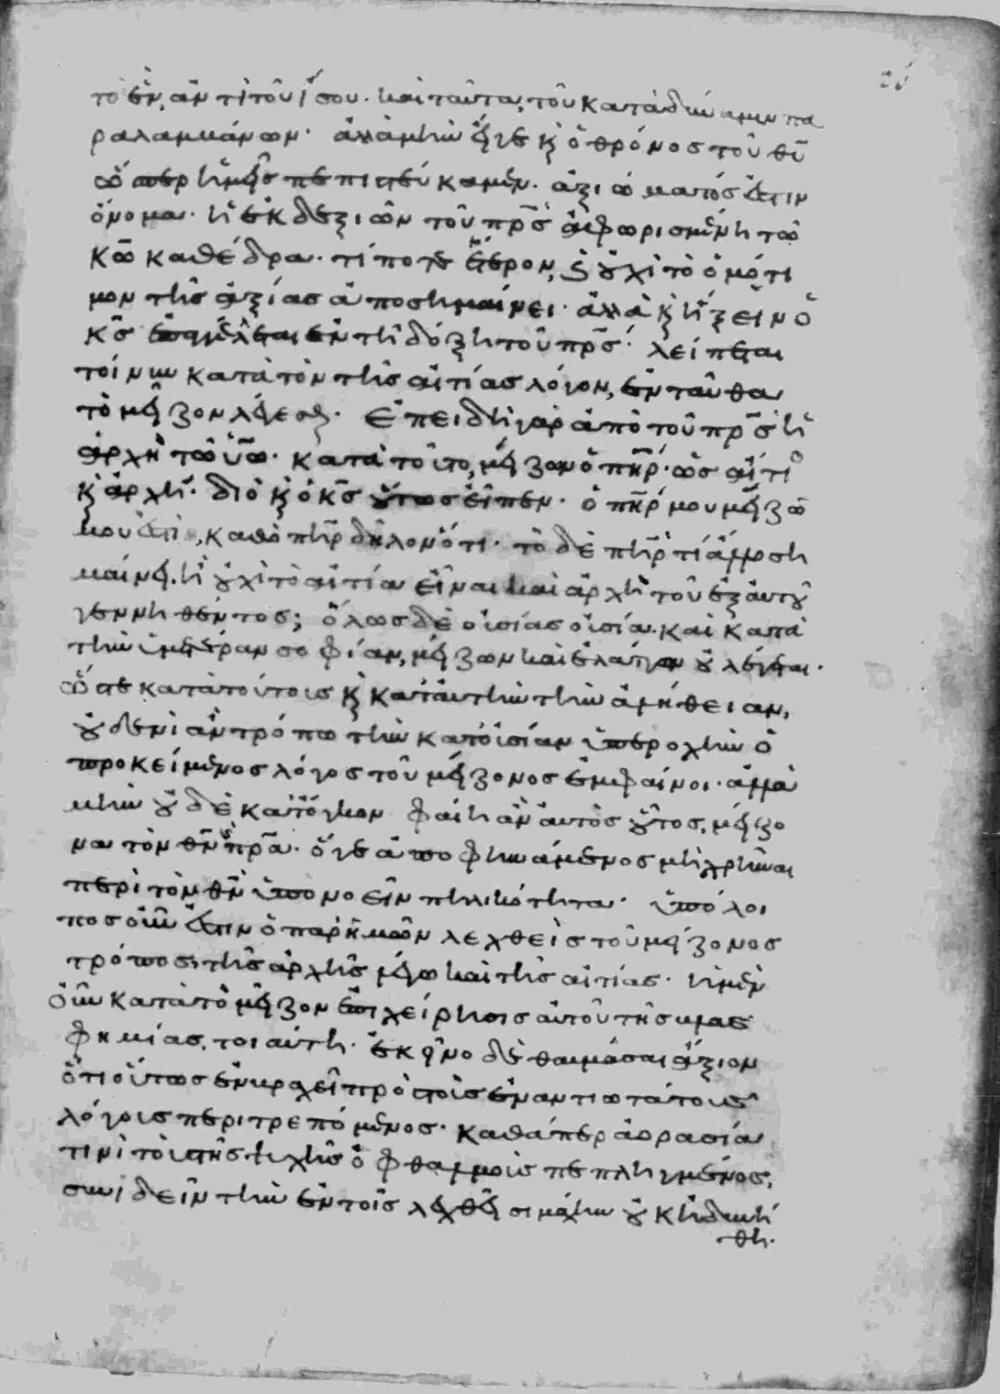 τὸ ἓν, ἀντὶ τοῦ ἴσου. καὶ ταῦτα, τοῦ κατὰ δύναμιν πα
ραλαμβάνων. ἀλλὰ μὴν εἴγε κ ὁ θρόνος τοῦ θῦ
ᾧπερ ἡμεῖς πεπιστεύκαμεν. ἀξιώματός ἐστιν
ὄνομα. ἡ ἐκ δεξιῶν τοῦ πρς ἀφωρισμένη τῶ
κῶ καθέδρα. τί ποτε ἕτερον, ἢ οὐχὶ τὸ ὁμότι
μον τῆς ἀξίας ἀποσημαίνει. ἀλλὰ κ ἥξειν ὁ
κς ἐπαγγέλεται ἐν τῆ δόξη τοῦ πρς. λείπεται
τοίνυν κατὰ τὸν τῆς αἰτίας λόγον, ἐνταῦθα
τὸ μεῖζον λέγεσθαι. ἐπειδὴ γὰρ ἀπὸ τοῦ πρς ἡ
ἀρχὴ τῶ υω. κατὰ τοῦτο, μείζων ὁ πηρ. ὡς αἴτιο
κ ἀρχή. διὸ κ ὁ κς οὕτως εἶπεν. ὁ πηρ μου μείζω
μου ἐστὶ, καθὸ πηρ δηλονότι. τὸ δὲ πηρ τί ἄλλο ση
μαίνει. ἢ οὐχὶ τὸ αἰτία εἶναι καὶ ἀρχὴ τοῦ ἐξ αὐτοῦ
γεννηθέντος; ὅλως δὲ οὐσίας οὐσία. καὶ κατὰ
τὴν ὑμετέραν σοφίαν, μείζων καὶ ἐλάττων οὐ λέγεται.
ὥστε κατὰ τούτοις κ κατ' αὐτὴν τὴν ἀλήθειαν,
οὐδενὶ ἂν τρόπω τὴν κατ' οὐσίαν ὑπεροχὴν ὁ
προκείμενος λόγος τοῦ μείζονος ἐμφαίνοι. ἀλλὰ
μὴν οὐδὲ κατ' ὄγκον φαίη ἂν αὐτὸς οὗτος, μείζο
να τὸν θν κ πρα. ὅγε ἀποφηνάμενος μὴ χρῆναι
περὶ τὸν θν ὑπονοεῖν πηλικότητα. ὑπόλοι
πος οὖν ἐστιν ὁ παρ' ἡμῶν λεχθεὶς τοῦ μείζονος
τρόπος, τῆς ἀρχῆς λέγω καὶ τῆς αἰτίας. ἡ μὲν
οὖν κατὰ τὸ μεῖζον ἐπιχείρησις αὐτοῦ τῆς βλασ
φημίας, τοιαύτη. ἐκεῖνο δὲ θαυμάσαι ἄξιον
ὅτι οὕτως ἐναργεῖ πρὸς τοῖς ἐναντιωτάτοις
λόγοις περιτρεπόμενος. καθάπερ ἀορασία
τινὶ τοῖς τῆς ψυχῆς ὀφθαλμοῖς πεπληγμένος,
συνιδεῖν τὴν ἐν τοῖς λεχθεῖσι μάχην οὐκ ἠδυνή
θη.